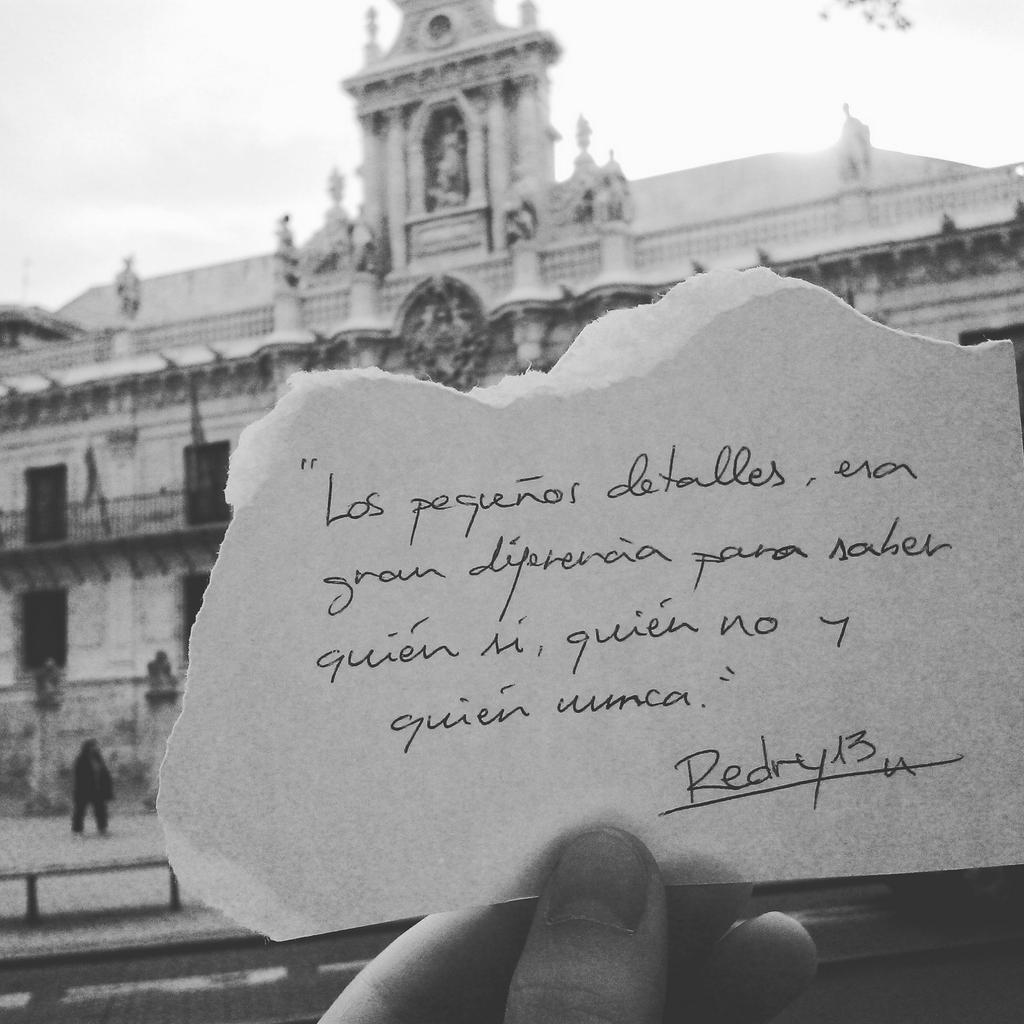 "Los pequeños detalles, esa
gran diferencia para saber
quién sí, quién no y
quién nunca."
Redry13